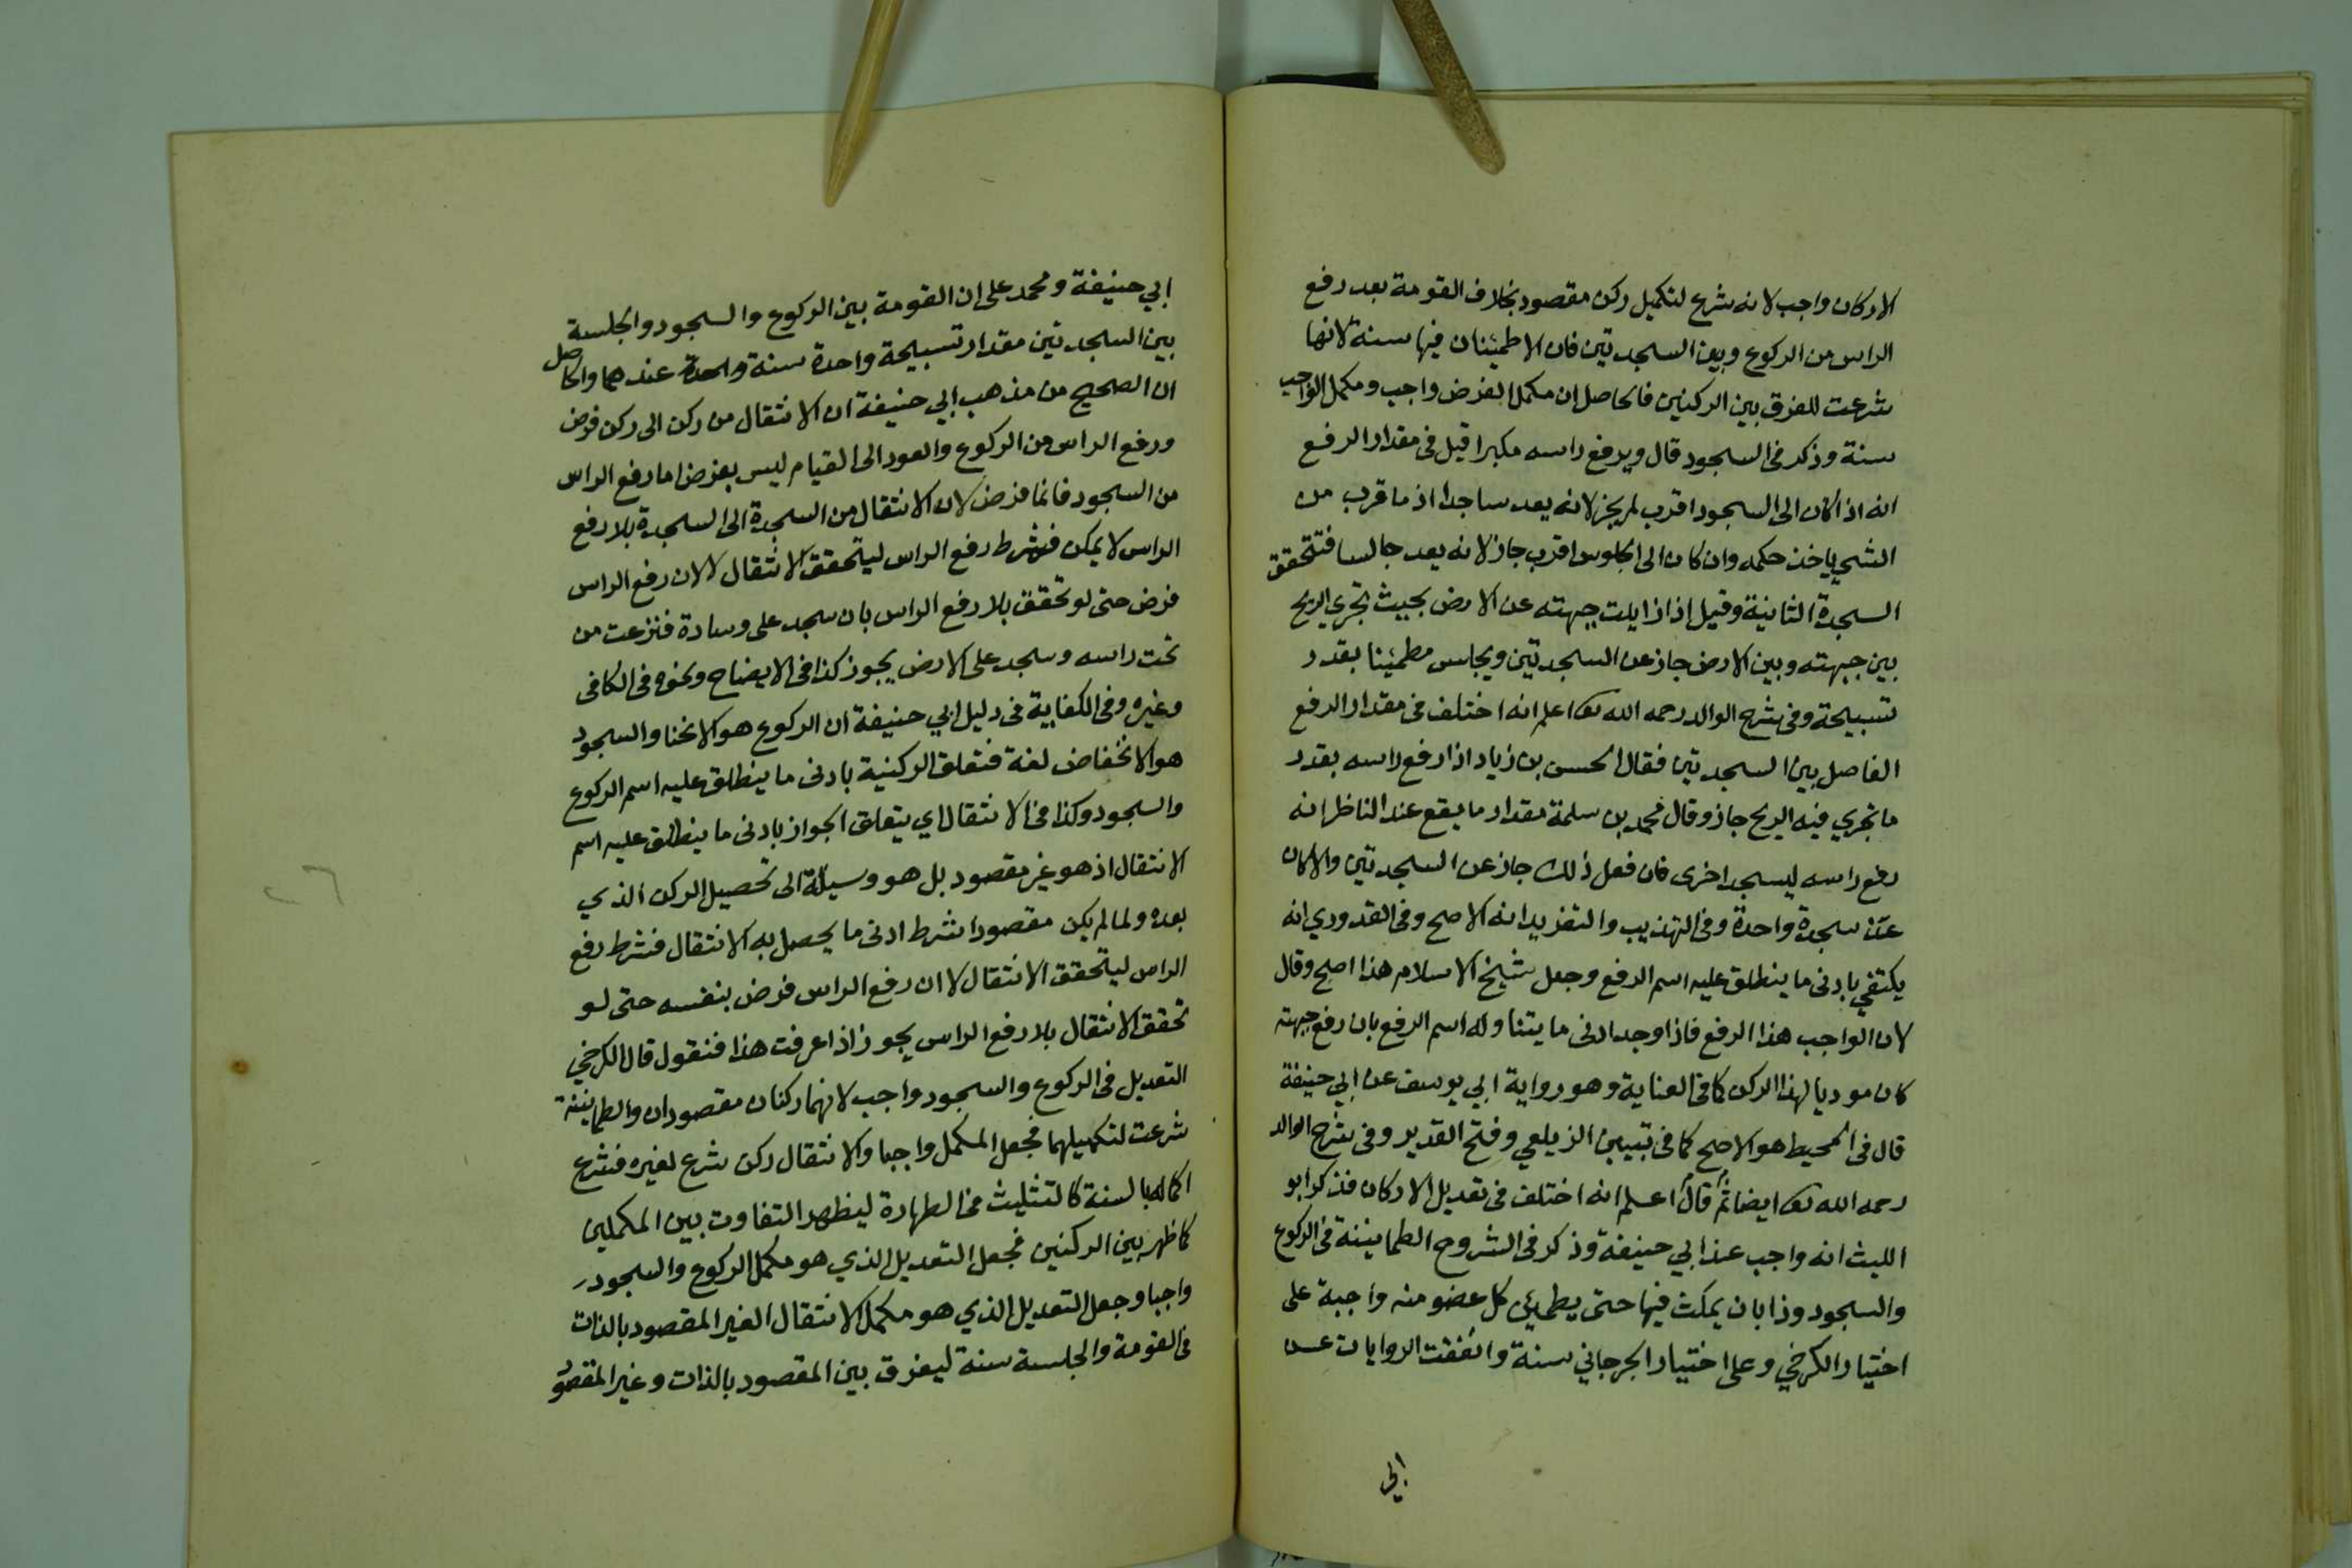 الاركان واجب لانه شرع لتكميل ركن مقصود بخلاف القومة بعد رفع
الراس من الركوع وبين السجدتين فان الاطمئنان فيها سنة لانها
شرعت للفرق بين الركنين فالحاصل ان مكمل الفرض واجب ومكمل الواجب
سنة وذكر في السجود قال ويرفع راسه مكبرا قيل في مقدار الرفع
انه اذا كان الى السجود اقرب لم يجز لانه يعد ساجدا اذ ما قرب من
الشي ياخذ حكمه وان كان الى الجلوس اقرب جاز لانه يعد جالسا فتتحقق
السجدة الثانية وقيل اذا زايلت جبهته عن الارض بحيث تجري الريح
بين جبهته وبين الارض جاز عن السجدتين ويجلس مطمئنا بقدر
تسبيحة وفي شرح الوالد رحمه الله تعا اعلم انه اختلف في مقدار الرفع
الفاصل بين السجدتين فقال الحسن بن زياد اذا رفع راسه بقدر
ما تجري فيه الريح جاز وقال محمد بن سلمة مقدار ما يقع عند الناظر انه
رفع راسه ليسجد اخرى فان فعل ذلك جاز عن السجدتين والا كان
عن سجدة واحدة وفي التهذيب والتفريد انه الاصح وفي القدوري انه
يكتفي بادنى ما ينطلق عليه اسم الرفع وجعل شيخ الاسلام هذا اصح وقال
لان الواجب هذا الرفع فاذا وجد ادنى ما يتناوله اسم الرفع بان رفع جبهته
كان موديا لهذا الركن كما في العناية وهو رواية ابي يوسف عن ابي حنيفة
قال في المحيط هو الاصح كما في تبيين الزيلعي وفتح القدير وفي شرح الوالد
رحمه الله تعا ايضا ثم قال اعلم انه اختلف في تعديل الاركان فذكر ابو
الليث انه واجب عند ابي حنيفة وذكر في الشروح الطمانينة في الركوع
والسجود وذا بان يمكث فيها حتى يطمئن كل عضو منه واجبة على
اختيار الكرخي وعلى اختيار الجرجاني سنة واتفقت الروايات عن
ابي
ابي حنيفة ومحمد على ان القومة بين الركوع والسجود والجلسة
بين السجدتين مقدار تسبيحة واحدة سنة واحدة عندهما والحاصل
ان الصحيح من مذهب ابي حنيفة ان الانتقال من ركن الى ركن فرض
ورفع الراس من الركوع والعود الى القيام ليس بفرض اما رفع الراس
من السجود فانما فرض لان الانتقال من السجدة الى السجدة بلا رفع
الراس لا يمكن فشرط رفع الراس ليتحقق الانتقال لا لان رفع الراس
فرض حتى لو تحقق بلا رفع الراس بان سجد على وسادة فنزعت من
تحت راسه وسجد على الارض يجوز كذا في الايضاح ونحوه في الكافي
وغيره وفي الكفاية في دليل ابي حنيفة ان الركوع هو الانحنا والسجود
هو الانخفاض لغة فتعلق الركنية بادنى ما ينطلق عليه اسم الركوع
والسجود وكذا في الانتقال اي يتعلق الجواز بادنى ما ينطلق عليه اسم
الانتقال اذ هو غير مقصود بل هو وسيلة الى تحصيل الركن الذي
بعده ولما لم يكن مقصودا شرط ادنى ما يحصل به الانتقال فشرط رفع
الراس ليتحقق الانتقال لا ان رفع الراس فرض بنفسه حتى لو
تحقق الانتقال بلا رفع الراس يجوز اذا عرفت هذا فنقول قال الكرخي
التعديل في الركوع والسجود واجب لانهما ركنان مقصودان والطمانينة
شرعت لتكميلهما فجعل المكمل واجبا والانتقال ركن شرع لغيره فشرع
اكماله بالسنة كالتثليث في الطهارة ليظهر التفاوت بين المكملين
كما ظهر بين الركنين فجعل التعديل الذي هو مكمل الركوع والسجود
واجبا وجعل التعديل الذي هو مكمل الانتقال الغير المقصود بالذات
في القومة والجلسة سنة ليفرق بين المقصود بالذات وغير المقصود